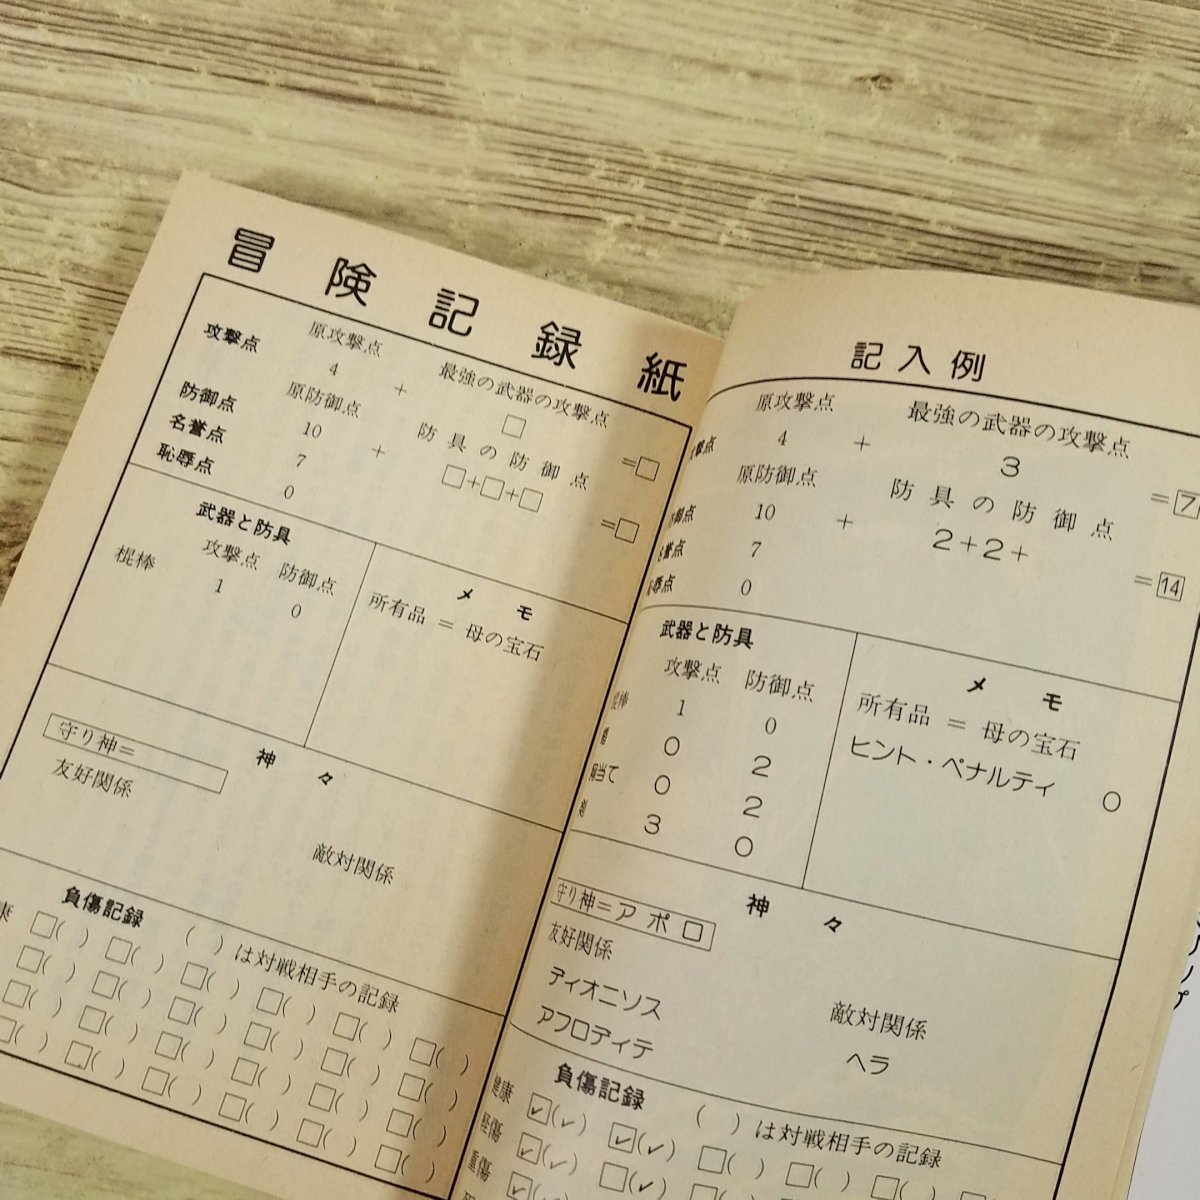 冒険記録紙
攻撃点 原攻撃点 4 + 最強の武器の攻撃点 □ =□
防御点 原防御点 10 + 防具の防御点 □+□+□ =□
名誉点 7
恥辱点 0
武器と防具
攻撃点 防御点
棍棒 1 0
メモ
所有品 = 母の宝石
神々
守り神=
友好関係
敵対関係
負傷記録 ( )は対戦相手の記録
康 □( ) □( ) □( ) □( ) □( ) □( )
□( ) □( ) □( ) □( ) □( ) □( )
□( ) □( ) □( ) □( ) □( ) □( )
□( ) □( ) □( ) □( ) □( ) □( )
記入例
撃点 原攻撃点 4 + 最強の武器の攻撃点 3 =7
御点 原防御点 10 + 防具の防御点 2+2+ =14
名誉点 7
恥辱点 0
武器と防具
攻撃点 防御点
棍棒 1 0
0 2
当て 0 2
3 0
メモ
所有品 = 母の宝石
ヒント・ペナルティ 0
神々
守り神=アポロ
友好関係
ディオニソス
アフロディテ
敵対関係
ヘラ
負傷記録 ( )は対戦相手の記録
健康 ☑(✓) ☑(✓) □( ) □( ) □( )
軽傷 ☑(✓) □(✓) □( ) □( )
重傷 ☑(✓)